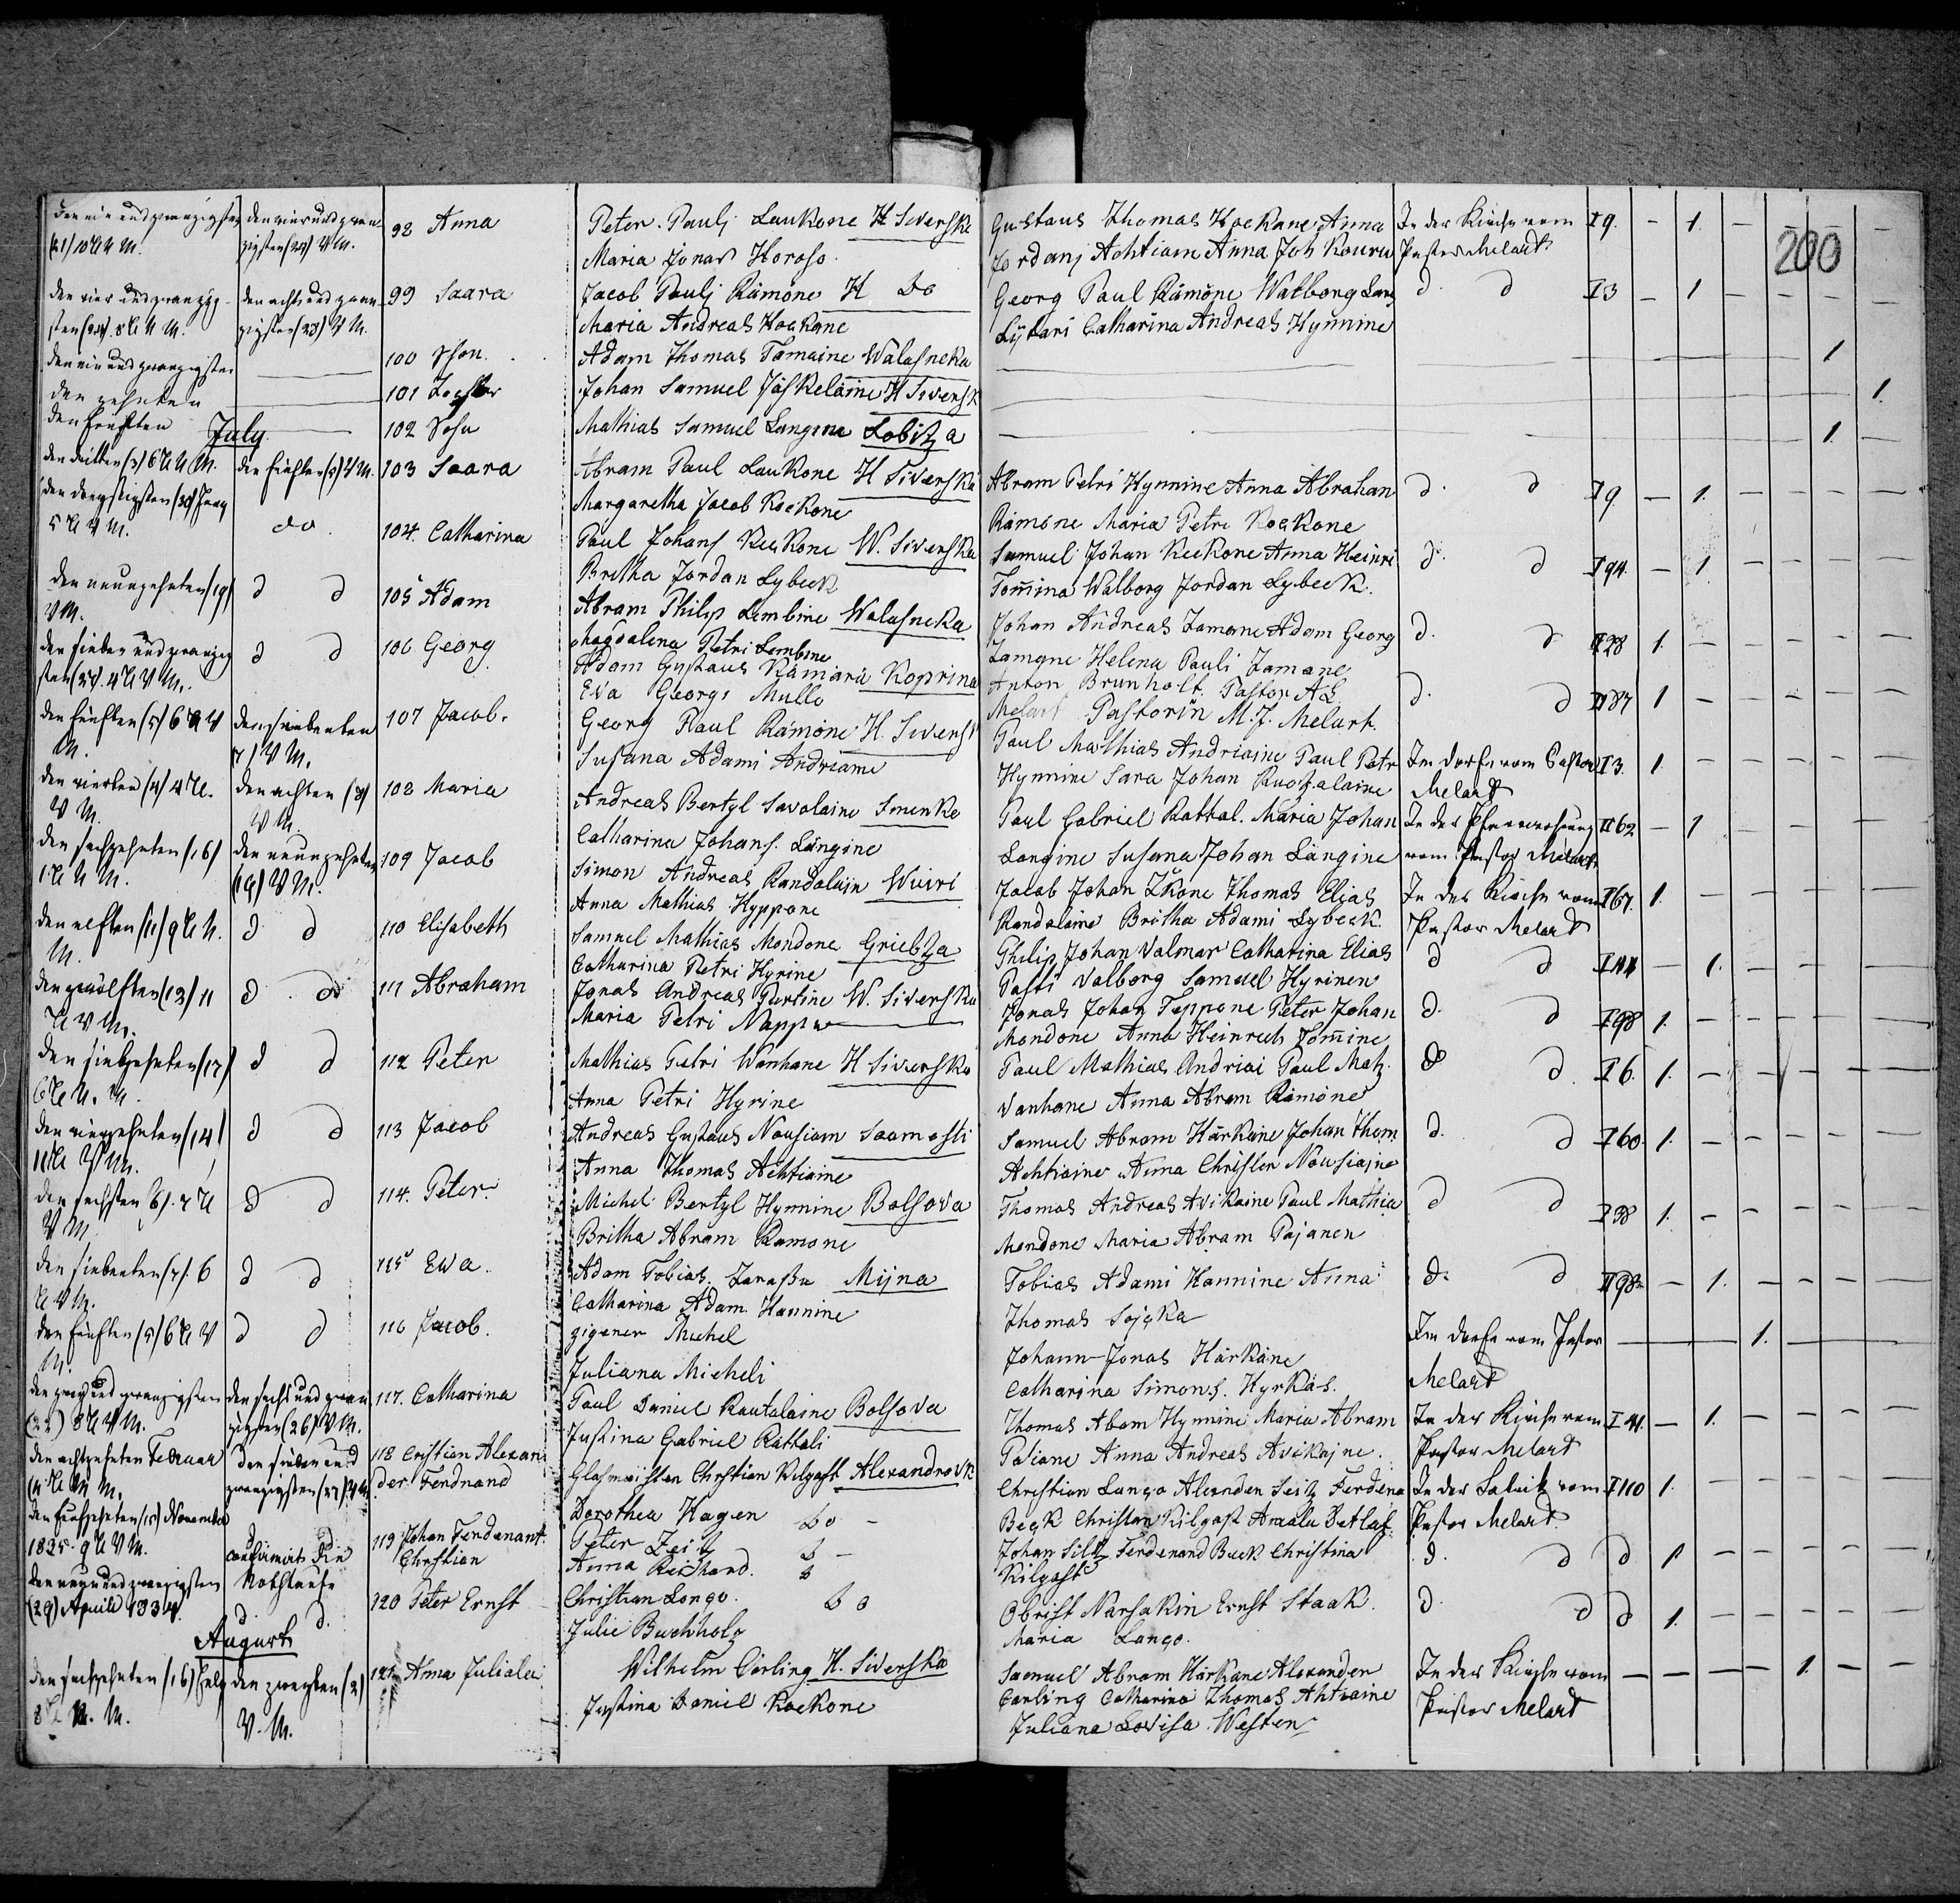 200
den ein und zwanzigsten den vier und zwan- 98 Anna Peter Paulj Laukone H Siverske Gustaus Thomas Hoekane Anna In der Kirche vom I 9. - 1. - - - -
(21) 10 U N M. zigsten (24) V M. Maria Jonas Horoso Jordanj Achtiain Anna Joh Kouru Pastor Melart
den vier und zwanzig- den acht und zwan- 99 Saara Jacob Paulj Rämöne H do Georg Paul Rämöne Walborg Lars d d I 3 - 1 - - - -
sten (24). 8 U N M. zigsten (28) V M. Maria Andreas Hockane Lijtari Catharina Andreas Hynnine
den ein und zwanzigsten 100 Sohn Adam Thomas Tamaine Walasneka 1
den zehnten 101 Tochter Johan Samuel Jäskeläine H Siversk 1.
den fünften 102 Sohn Mathias Samuel Langine Lobitza 1. -
July
den dritten (3) 6 U N M. den fünften (5) V M. 103 Saara Abram Paul Laukone H Siverska Abram Petri Hynnine Anna Abraham d. d I 9 - 1. - - - -
den dreyssigsten (30) Juny Margaretha Jacob Kockone Rämöne Maria Petri Kockone
5 U V M. do. 104. Catharina Paul Johans Keckone W. Siverska Samuel Johan Keekone Anna Heinri d. d I 94. - 1 - - - -
Britha Jordan Lybeck Tom̄ina Walborg Jordan Lybeck.
den neunzehnten (19) d d 105 Adam Abram Philip Lembine Walasneka Johan Andreas Jamone Adam Georg d. d II 28 1. - - - - -
V M. Magdalena Petri Lembine Jamone Helena Pauli Jamane
den sieben und zwanzig d d 106 Georg Adam Gustaus Kämärä Koprina Anton Brunholt. Pastor A L d. d II 87 1 - - - - -
sten (27). 4 U V M. Eva Georgs Mullo Melart Pastorin M. J. Melart.
den fünften (5) 6 U V den siebenten 107 Jacob. Georg Paul Rämöne H. Siversk Paul Mathias Andriaine Paul Petr Im Dorfe vom Pastor I 3. 1. - - - - -
M. 7) V M. Susana Adami Andriaine Hynnine Sara Johan Ruotzalaine Melart
den vierten (4) 4 U. den achten (8) 108 Maria Andreas Bertyl Savolaine Smenke Paul Gabriel Rattal. Maria Johan In der Pfarrwohnung II 62 - 1 - - - -
V M. V M. Catharina Johans. Längine Langine Susana Johan Längine vom Pastor Melart
den sechzehnten (16) den neunzehnten 109 Jacob Simon Andreas Randolain Wuiri Jacob Johan Ikone Thomas Elias In der Kirche vom I 67. 1. - - - - -
1 U N M. (19) V M. Anna Mathias Hyppone Randalaine Britha Adami Lybeck. Pastor Melart
den elften (11) 9 U N. d d 110 Elisabeth Samuel Mathias Mondone Griebza Philip Johan Valmar Catharina Elias d d I 44 - 1. - - - -
M. Catharina Petri Hyrine Pasti Valborg Samuel Hyrinen
den zwölften (12) 11 d d 111 Abraham Jonas Andreas Purtine W. Siverska Jonas Johan Teppone Peter Johan d. d I 98 1. - - - - -
U V M. Maria Petri Nappu Mondone Anna Heinrich Tom̄ine
den siebzehnten (17) d d 112 Peter Mathias Petri Wanhane H Siverska Paul Mathias Andriai Paul Matz. d d. I 6. 1. - - - - -
6 U N. M. Anna Petri Hyrine Vanhane Anna Abram Rämöne
den vierzehnten (14) d d 113 Jacob Andreas Gustaus Nousiain Saamosti Samuel Abram Härkäne Johan Thom d. d I 60. 1. - - - - -
11 U V M. Anna Thomas Achtiaine Achtiaine Anna Christer Nousiaine
den sechsten (6). 7 U d d 114. Peter. Michel Bertyl Hynnine Bolsova Thomas Andreas Avikaine Paul Mathia d d I 38 1. - - - - -
V M. Britha Abram Ramone Mondone Maria Abram Pajanen
den siebenten (7). 6 d d 115 Ewa. Adam Tobias. Mijna Tobias Adami Hannine Anna d. d II 98. - 1. - - - -
U V M. Catharina Adam Hannine Thomas Sojcka
den fünften (5) 6 U V d d 116 Jacob. zigener Michel Johann Jonas Härkäne Im Dorfe vom Pastor 1.
M. Juliana Micheli Catharina Simons. Hyrkäs. Melart
den zwey und zwanzigsten den sechs und zwan 117. Catharina Paul Daniel Rautalaine Bolsova Thomas Abam Hynnine Maria Abram In der Kirche vom I 41. - 1. - - - -
(22) 8 U V M. zigsten (26) V M. Justina Gabriel Rättäli Potiane Anna Andreas Avikajne. Pastor Melart
den achtzehnten Februar den sieben und 118 Cristian Alexan Glasmeister Christian Kilgast Alexandrovk Christian Lango Alexander Seitz Ferdina In der Fabrik vom I 110 1. - - - - -
zwanzigsten (27) der Ferdnand Dorothea Hagen do - Beck Christian Kilgast Amalia Detlaf. Pastor Melart.
den fünfzehnten (15) November d 119 Johan Ferdenant Peter Zeitz d - Johan Siltz Ferdenand Buck Christina d. d d 1. - - - - -
1835. 9 U V M. confirmirt die Christian Anna Reichard. d Kilgast
den neun und zwanzigsten Nothtaufe 120 Peter Ernst Christian Lango. do Obrist Narsakin Ernst Staak. d. d d 1. - - - - -
(29) Aprill 1834. d. d. Julie Buchholz Maria Lango.
August
den sechzehnten (16) July den zweyten (2) 121. Anna Juliala Wilhelm Carling H. Siverska Samuel Abram Härkäne Alexander In der Kirche vom - - - - 1. - -
8 U N. M. V. M. Justina Daniel Kockone Carling Catharina Thomas Ahtiaine Pastor Melart
Juliana Lovisa Westen